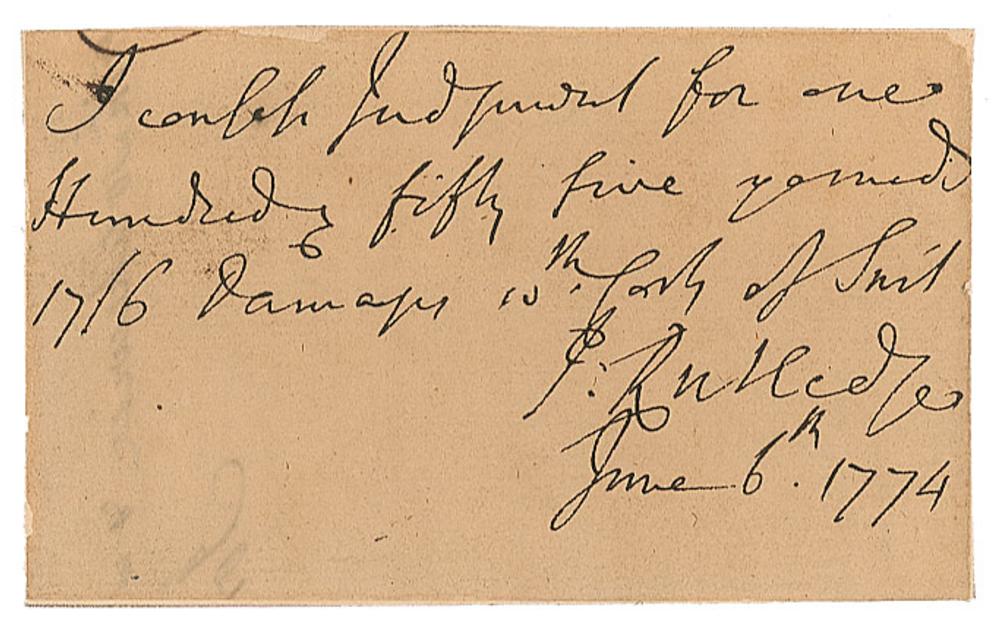 I confess Judgment for one
Hundred & fifty five pounds
17/6 Damages wth. Costs of Suit
J. Rutledge
June 6th. 1774